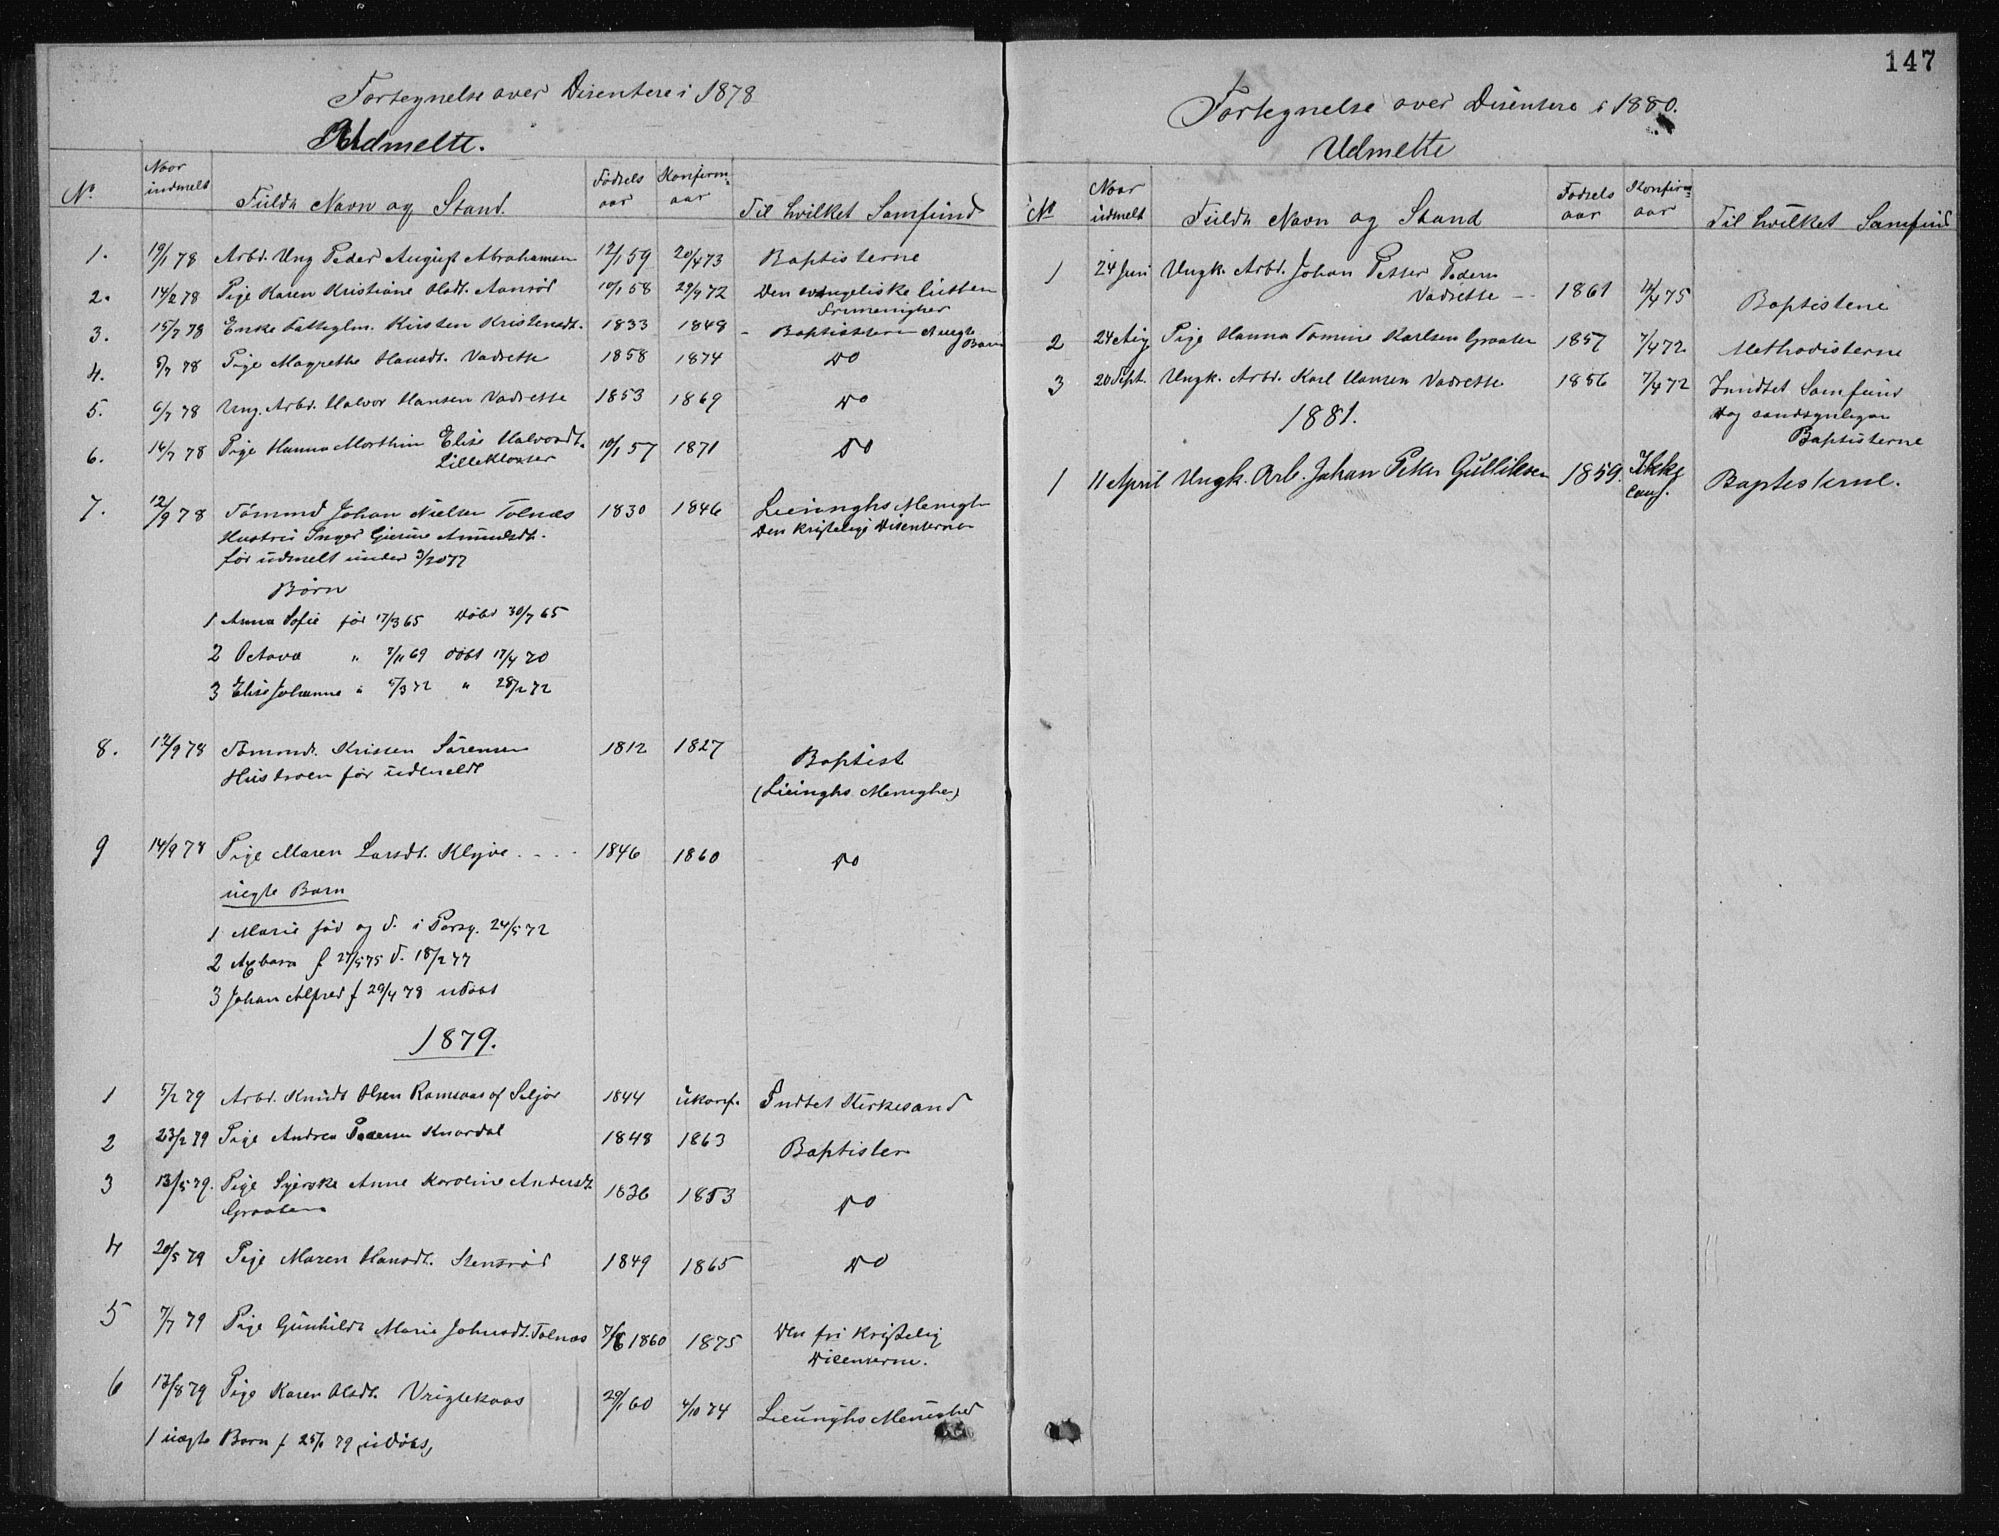 Fortegnelse over Disentere i 1878
Udmelte.
No
Naar indmelt
Fulda Navn og Stand.
Fødsels aar
Konfirm- aar
Til hvilket Samfund
1. 19/1 78 Arbd. Ung Peder August Abrahamsen 12/1 59 20/4 73 Baptisterne
2. 14/2 78 Pige Karen Kristiane Olsdt. Aanrød 10/1 58 29/9 72 Den evangeliske lutter
Frimenigher
3. 15/7 78 Enke Fatteglm. Kirsten Kristensdt. 1833 1848 - Baptistern
4. 5/7 78 Pige Magrethe Hansdt. Vadrette 1858 1874 Do
5. 6/7 78 Ung. Arbd. Halvor Hansen Vadrette 1853 1869 Do
6. 14/7 78 Pige Hanna Morthin Elise Halvorsdt. 10/1 57 1871 Do
Lilleklaster
7. 12/9 78 Tømmd Johan Nielsen Tolnæs 1830 1846 Lieunghs Menigh
Hustru Inger Gurine Amundsdt. Den Kristelige Disenterne
før udmelt under 3/20 77
Børn
1 Anna Sofie fød 17/3 65 Døbt 30/7 65
2 Octava " 7/11 69 døbt 17/4 70
3 Elise Johanne " 5/3 72 " 28/2 72
8. 12/9 78 Tømmd. Kristen Sørensen 1812 1827 Baptist
Hustruen før udmeldt
(Lieunghs Menighe)
9 14/9 78 Pige Maren Larsdt. Klyve . - . . 1846 1860 Do
uegte Barn
1 Marie fød og d. i Porsg. 24/5 72
2 f 27/5 75 d. 18/2 77
3 Johan Alfred f 29/4 78 udøbt
1879.
1 5/2 79 Arbd. Knudt Olsen Ramsaas af Seljor 1844 ukonf. Indtet Kirkesand
2 23/2 79 Pige Andrea Pedersen Knardal 1848 1863 Baptister
3 13/5 79. Pige Syerske Anne Karoline Andersdt. 1836 1853 Do
Graaten
4 20/5 79 Pige Maren Hansdt. Stensrød 1849 1865 Do
5 7/7 79 Pige Gunhilda Marie Johnsdt. Tolnæs 7/6 1860 1875 Den fri Kristelig
Disenterne.
6 13/8 79 Pige Karen Olsdt. Vrigtekaas 29/1 60 4/10 74 Lieunghs Menighed
1 uegte Barn f 25/1 79 udøbt
147
Fortegnelse over Disentere i 1880.
Udmelte
No
Naar udmelt
Fulda Navn og Stand
Fødsels aar
Konfirm- aar
Til hvilket Samfund
1 24 Juni Ungk. Arbd. Johan Petter Peders
Vadrette - 1861 12/4 75 Baptistene
2 24 Aug Pige Hanna Tomine Karlsen Graaten 1857 7/4 72 Methodisterne
3 20 Sept. Ungk. Arbd. Karl Hansen Vadrette 1856 7/4 72 Indtet Samfund
dog sandsynligen
Baptisterne
1881.
1 11 April Ungk. Arb. Johan Peter Gulliksen 1859. Ikke Conf. Baptisterne.